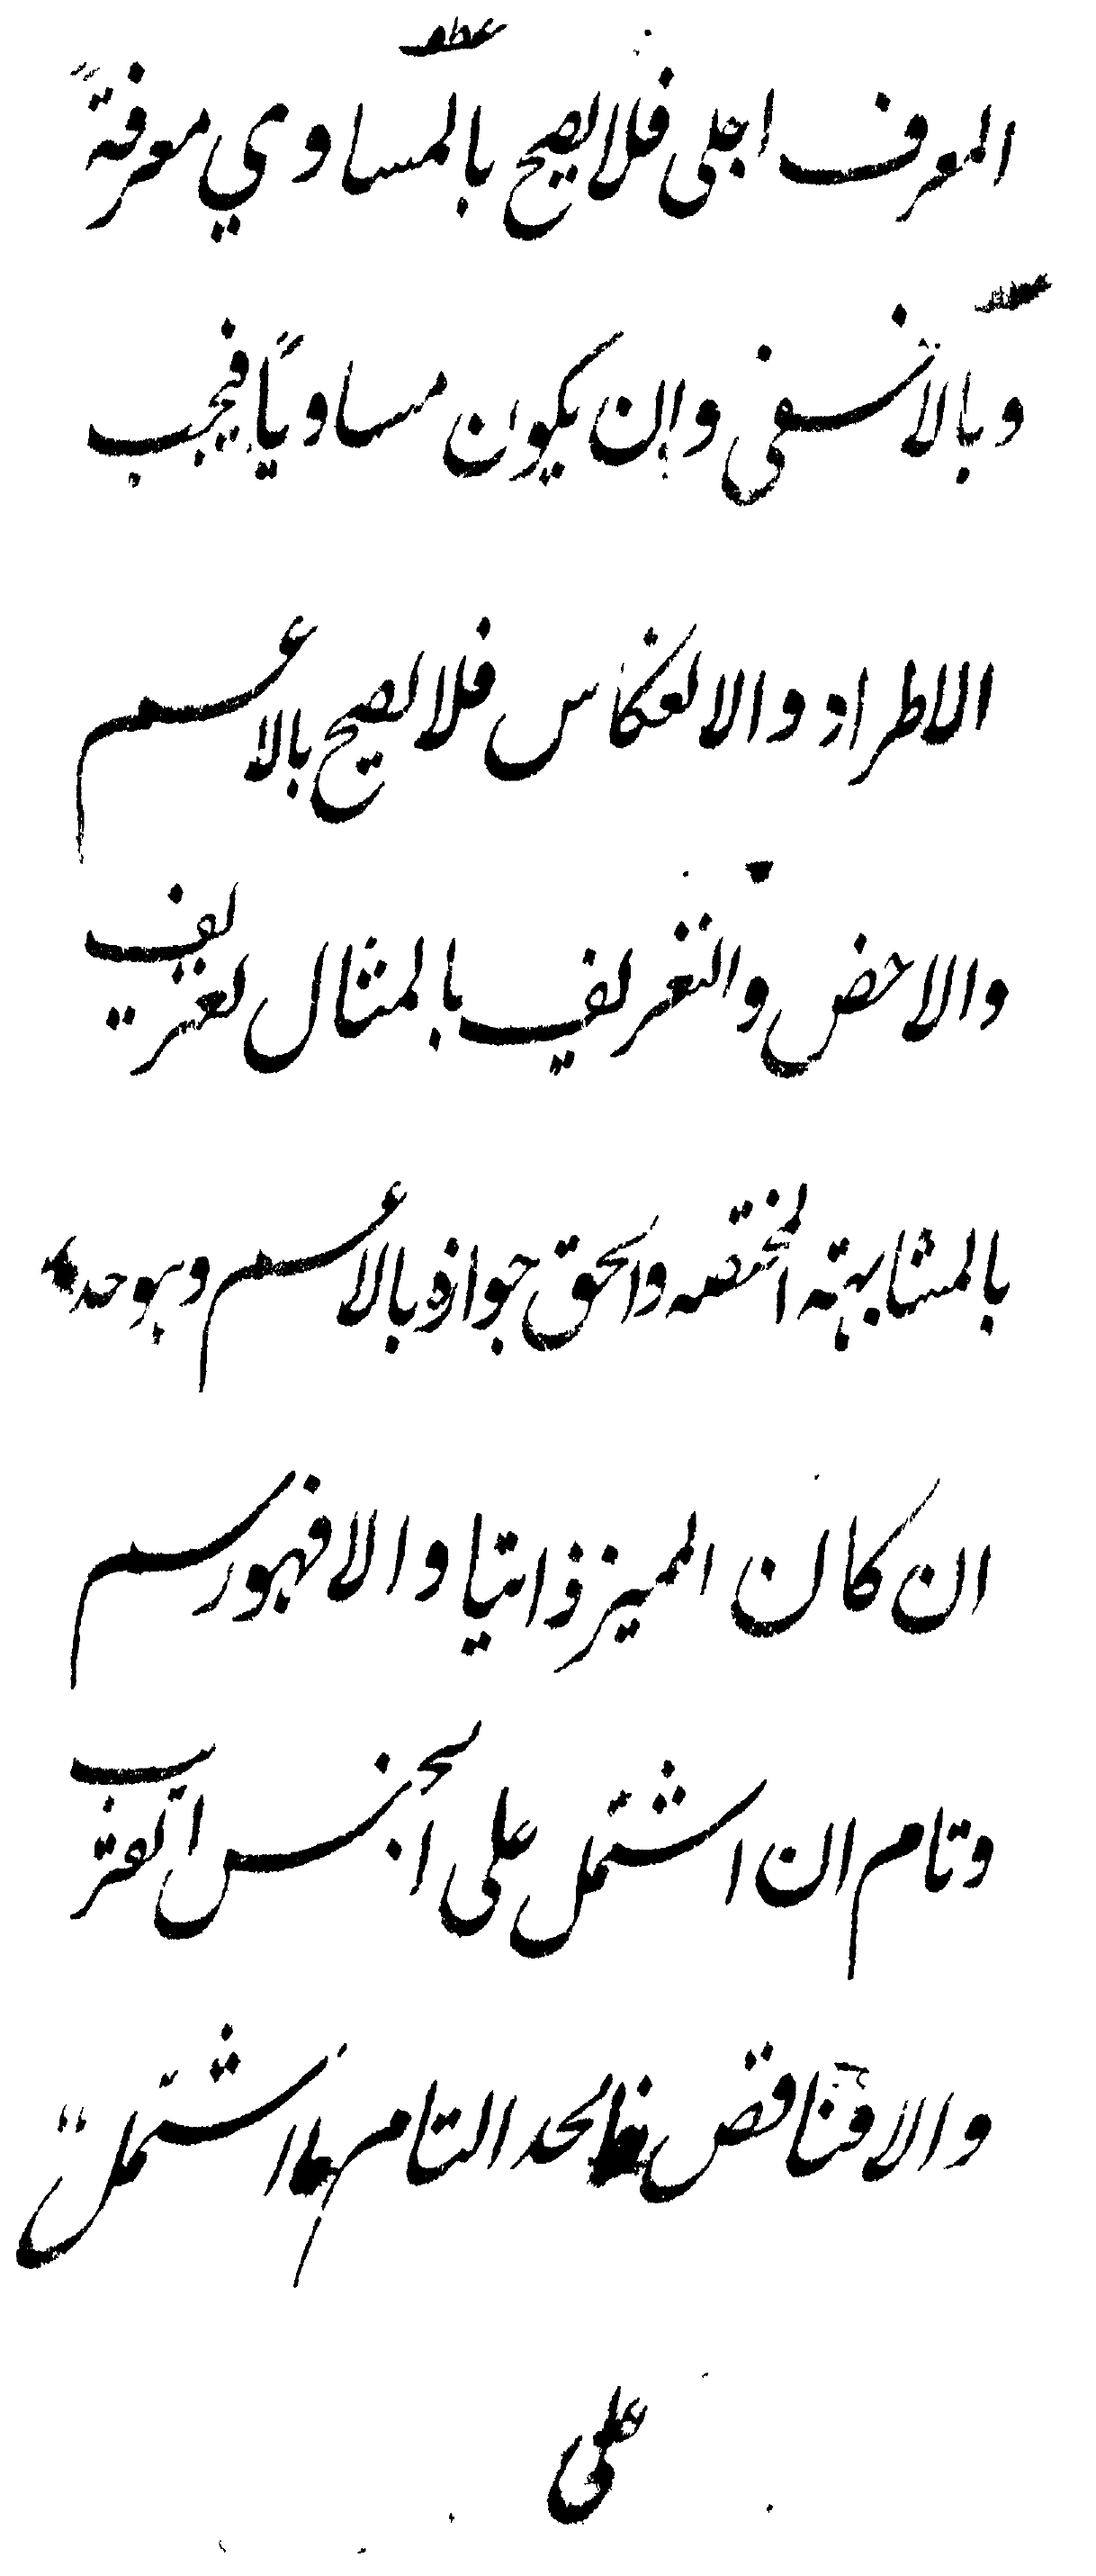 عطف
المعرف اجلى فلا يصح بالمساوي معرفةً
وبالاخفى وان يكون مساوياً فيجب
الاطراد والانعكاس فلا يصح بالاعم
والاخص والتعريف بالمثال تعريف
بالمشابهة المختصة والحق جوازه بالاعم وهو حد
ان كان المميز ذاتيا والا فهو رسم
وتام ان اشتمل على الجنس القريب
والا فناقص فالحد التام ما اشتمل
على